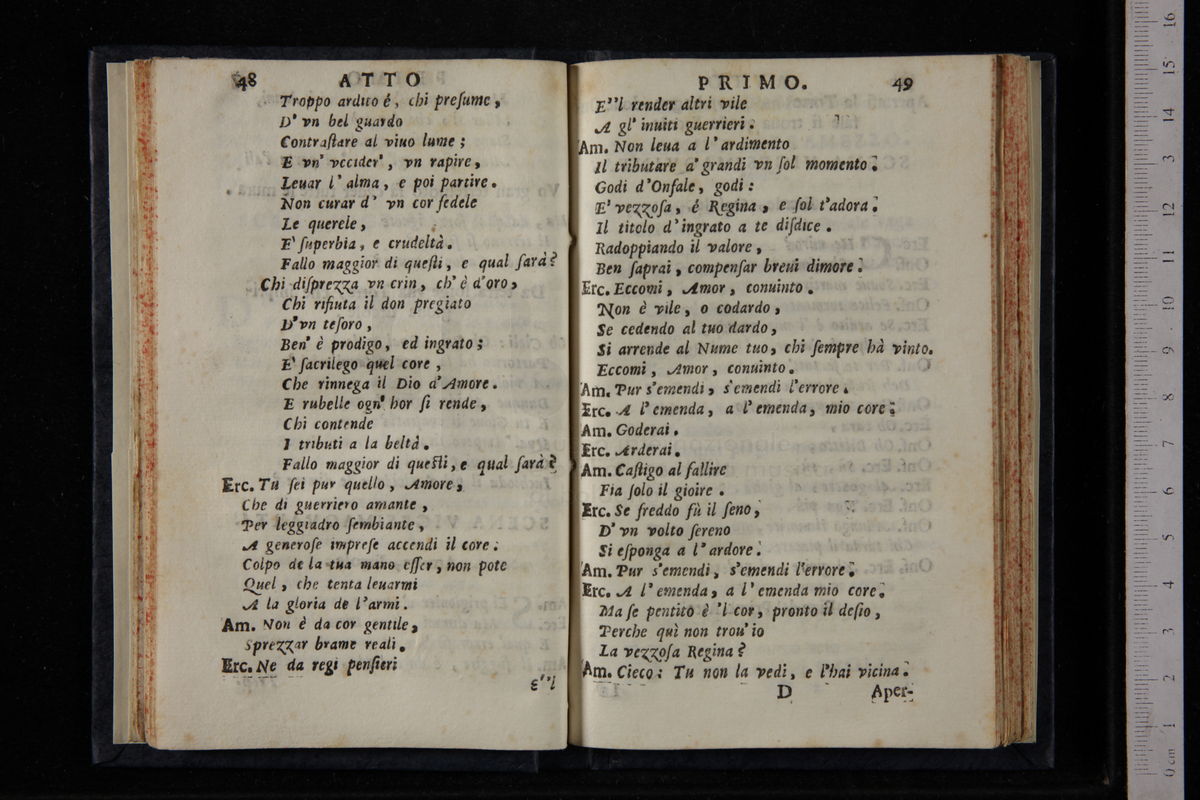 48 ATTO
Troppo ardito é, chi preſume,
D' vn bel guardo
Contraſtare al viuo lume;
E vn' vccider', vn rapire,
Leuar l' alma, e poi partire.
Non curar d' vn cor fedele
Le querele,
E' ſuperbia, e crudeltà.
Fallo maggior di queſti, e qual ſarà?
Chi diſprezza vn crin, ch' è d'oro,
Chi rifiuta il don pregiato
D'vn teſoro,
Ben' è prodigo, ed ingrato;
E' ſacrilego quel core,
Che rinnega il Dio d'Amore.
E rubelle ogn' hor ſi rende,
Chi contende
I tributi a la beltà.
Fallo maggior di queſti, e qual ſarà?
Erc. Tu ſei pur quello, Amore,
Che di guerriero amante,
Per leggiadro ſembiante,
A generoſe impreſe accendi il core:
Colpo de la tua mano eſſer, non pote
Quel, che tenta leuarmi
A la gloria de l'armi.
Am. Non è da cor gentile,
Sprezzar brame reali.
Erc. Ne da regi penſieri
E''l
PRIMO. 49
E''l render altri vile
A gl' inuiti guerrieri.
Am. Non leua a l' ardimento
Il tributare a' grandi vn ſol momento.
Godi d'Onfale, godi:
E' vezzoſa, é Regina, e ſol t'adora.
Il titolo d'ingrato a te diſdice.
Radoppiando il valore,
Ben ſaprai, compenſar breui dimore.
Erc. Eccomi, Amor, conuinto.
Non è vile, o codardo,
Se cedendo al tuo dardo,
Si arrende al Nume tuo, chi ſempre hà vinto.
Eccomi, Amor, conuinto.
Am. Pur s'emendi, s'emendi l'errore.
Erc. A l' emenda, a l' emenda, mio core.
Am. Goderai.
Erc. Arderai.
Am. Caſtigo al fallire
Fia ſolo il gioire.
Erc. Se freddo fù il ſeno,
D' vn volto ſereno
Si eſponga a l' ardore.
Am. Pur s'emendi, s'emendi l'errore.
Erc. A l' emenda, a l' emenda mio core.
Ma ſe pentito è 'l cor, pronto il deſio,
Perche quì non trou' io
La vezzoſa Regina?
Am. Cieco: Tu non la vedi, e l'hai vicina.
D Aper-
0 cm 1 2 3 4 5 6 7 8 9 10 11 12 13 14 15 16